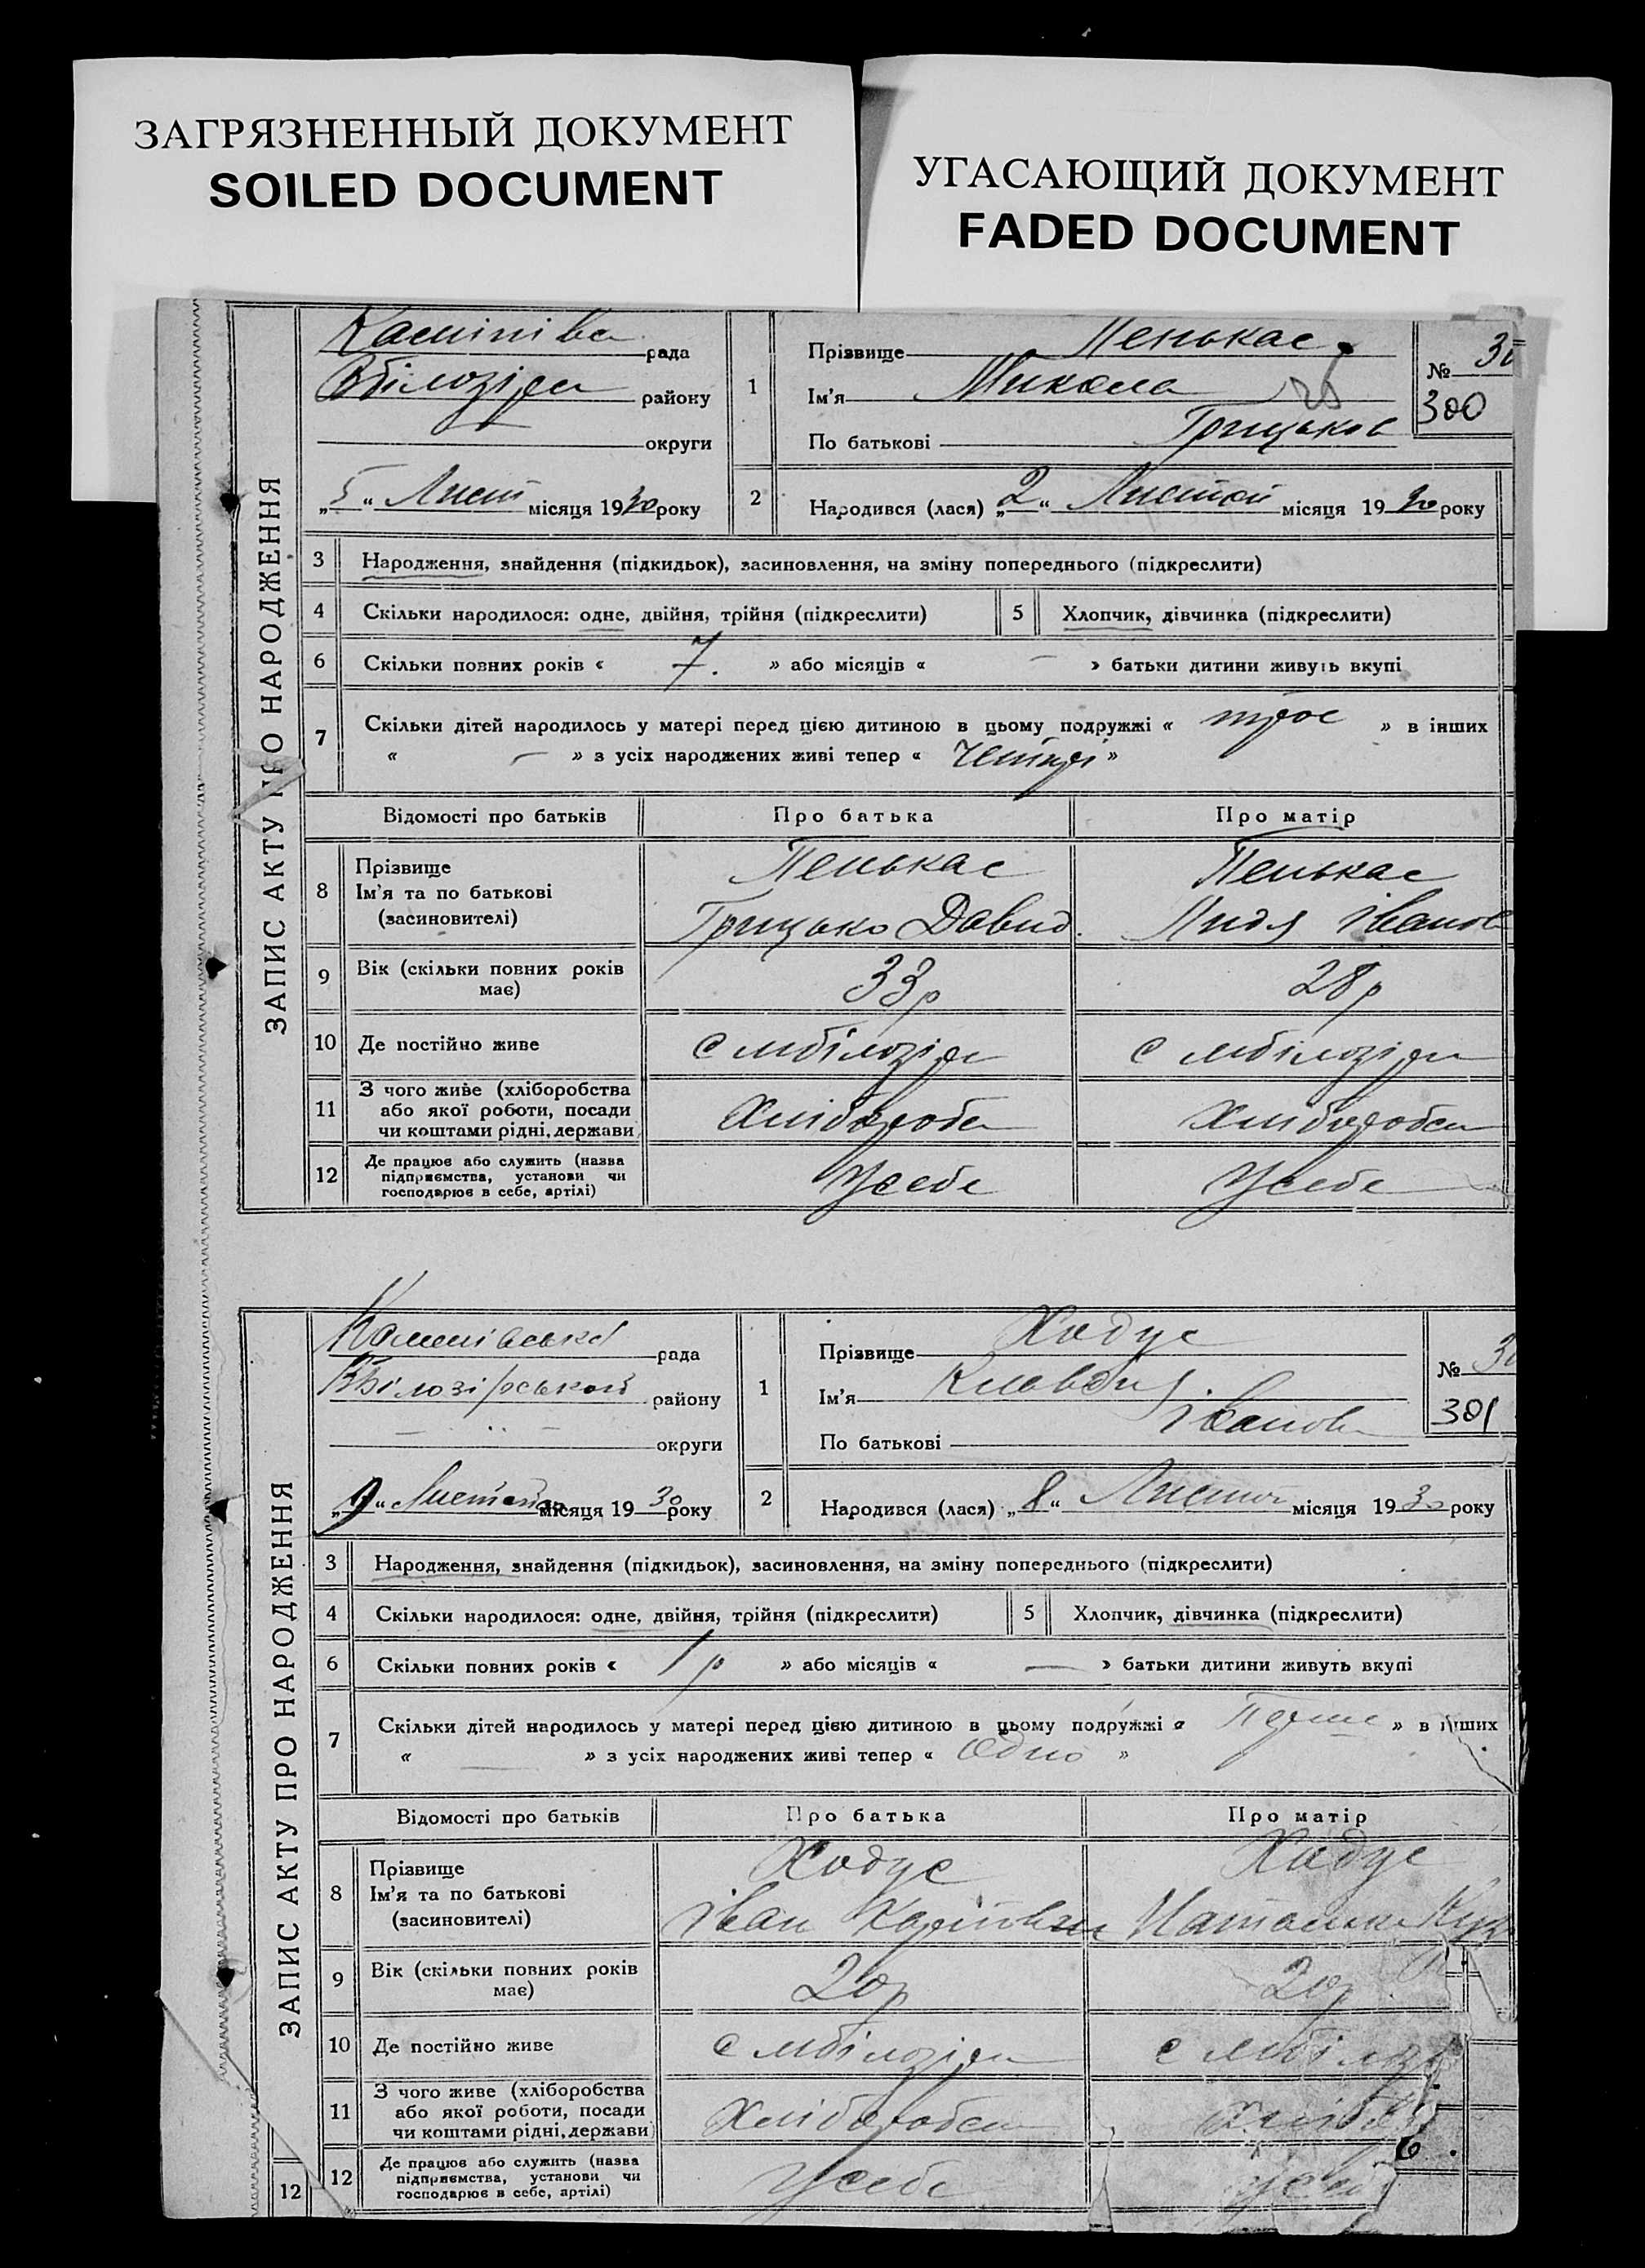 ЗАГРЯЗНЕННЫЙ ДОКУМЕНТ
SOILED DOCUMENT
УГАСАЮЩИЙ ДОКУМЕНТ
FADED DOCUMENT
ЗАПИС АКТУ ПРО НАРОДЖЕННЯ
рада
району
округи
„5“ Лист місяця 1930 року
1
Прізвище Пенькас
Ім’я Микола
По батькові Грицьков
№ 30
300
2
Народився (лася) „2“ Листоп місяця 1930 року
3 Народження, знайдення (підкидьок), засиновлення, на зміну попереднього (підкреслити)
4 Скільки народилося: одне, двійня, трійня (підкреслити)
5 Хлопчик, дівчинка (підкреслити)
6 Скільки повних років « 7. » або місяців « — » батьки дитини живуть вкупі
7 Скільки дітей народилось у матері перед цією дитиною в цьому подружжі « троє » в інших
« — » з усіх народжених живі тепер « »
Відомості про батьків Про батька Про матір
8 Прізвище
Ім’я та по батькові
(засновителі)
Пенькас
Грицько Давид.
Пенькас
Лидя Іванов
9 Вік (скільки повних років має) 33р 28р
10 Де постійно живе с мбілозірк с мбілозірк
11 З чого живе (хліборобства
або якої роботи, посади
чи коштами рідні, держави
Хлібороб Хлібороб
12 Де працює або служить (назва
підприємства, установи чи
господарює в себе, артілі)
Усебе Усебе
ЗАПИС АКТУ ПРО НАРОДЖЕННЯ
рада
Вбілозірський району
округи
„9“ Листоп місяця 1930 року
1
Прізвище Ходус
Ім’я Клавдія.
По батькові Іванов
№ 30
301
2
Народився (лася) „8“ Листоп місяця 1930 року
3 Народження, знайдення (підкидьок), засиновлення, на зміну попереднього (підкреслити)
4 Скільки народилося: одне, двійня, трійня (підкреслити)
5 Хлопчик, дівчинка (підкреслити)
6 Скільки повних років « 1р » або місяців « — » батьки дитини живуть вкупі
7 Скільки дітей народилось у матері перед цією дитиною в цьому подружжі « Перше » в інших
« — » з усіх народжених живі тепер « Одно »
Відомості про батьків Про батька Про матір
8 Прізвище
Ім’я та по батькові
(засиновителі)
Ходус
Іван
Ходус
Наталка
9 Вік (скільки повних років має) 20р 20р
10 Де постійно живе с мбілозірк с мбілозі
11 З чого живе (хліборобства
або якої роботи, посади
чи коштами рідні, держави)
Хлібороб Хлібо
12 Де працює або служить (назва
підприємства, установи чи
господарює в себе, артілі)
Усебе Усеб
12